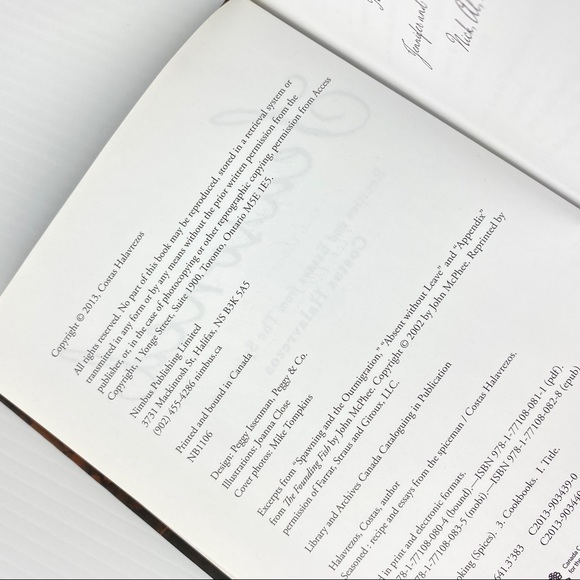 Jennifer and
Nick, Al
Copyright © 2013, Costas Halavrezos
All rights reserved. No part of this book may be reproduced, stored in a retrieval system or
transmitted in any form or by any means without the prior written permission from the
publisher, or, in the case of photocopying or other reprographic copying, permission from Access
Copyright, 1 Yonge Street, Suite 1900, Toronto, Ontario M5E 1E5.
Nimbus Publishing Limited
3731 Mackintosh St, Halifax, NS B3K 5A5
(902) 455-4286 nimbus.ca
Printed and bound in Canada
NB1106
Design: Peggy Issenman, Peggy & Co.
Illustrations: Joanna Close
Cover photos: Mike Tompkins
Excerpts from "Spawning and the Outmigration," "Absent without Leave" and "Appendix"
from The Founding Fish by John McPhee. Copyright © 2002 by John McPhee. Reprinted by
permission of Farrar, Straus and Giroux, LLC.
Library and Archives Canada Cataloguing in Publication
Halavrezos, Costas, author
Seasoned : recipe and essays from the spiceman / Costas Halavrezos.
d in print and electronic formats.
8-1-77108-080-4 (bound).—ISBN 978-1-77108-081-1 (pdf).
78-1-77108-083-5 (mobi).—ISBN 978-1-77108-082-8 (epub)
king (Spices). 3. Cookbooks. I. Title.
41.3'383 C2013-903439-0
C2013-90344
Canada C
for the